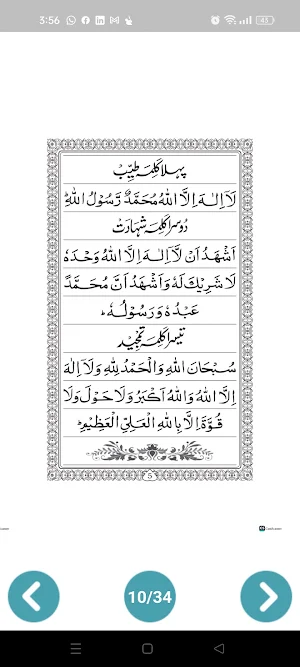 3:56
45
پہلا کلمہ طیّب
لَآ اِلٰـهَ اِلَّا اللهُ مُحَمَّدٌ رَّسُوْلُ اللهِ
دُوسرا کلمہ شہادت
اَشْهَدُ اَنْ لَّآ اِلٰـهَ اِلَّا اللهُ وَحْدَهٗ
لَا شَرِيْكَ لَهٗ وَاَشْهَدُ اَنَّ مُحَمَّدًا
عَبْدُهٗ وَرَسُوْلُـهٗ
تیسرا کلمہ تمجید
سُبْحَانَ اللهِ وَالْحَمْدُ لِلّٰهِ وَلَآ اِلٰهَ
اِلَّا اللهُ وَاللهُ اَكْبَرُ وَلَا حَوْلَ وَلَا
قُوَّةَ اِلَّا بِاللهِ الْعَلِيِّ الْعَظِيْمِ
5
10/34